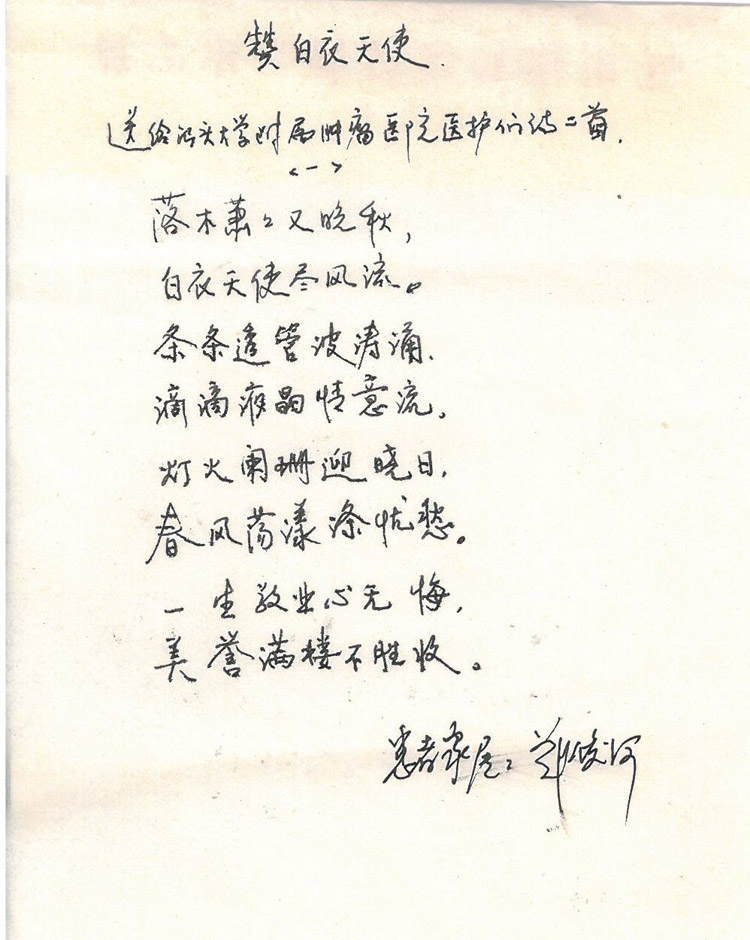 赞白衣天使.
送给汕头大学附属肿瘤医院医护们诗二首.
<一>
落木萧々又晚秋,
白衣天使尽风流。
条条透管波涛涌.
滴滴液晶情意流。
灯火阑珊迎晓日.
春风荡漾涤忧愁。
一生敬业心无悔,
美誉满楼不胜收。
患者家属: 郑俊河